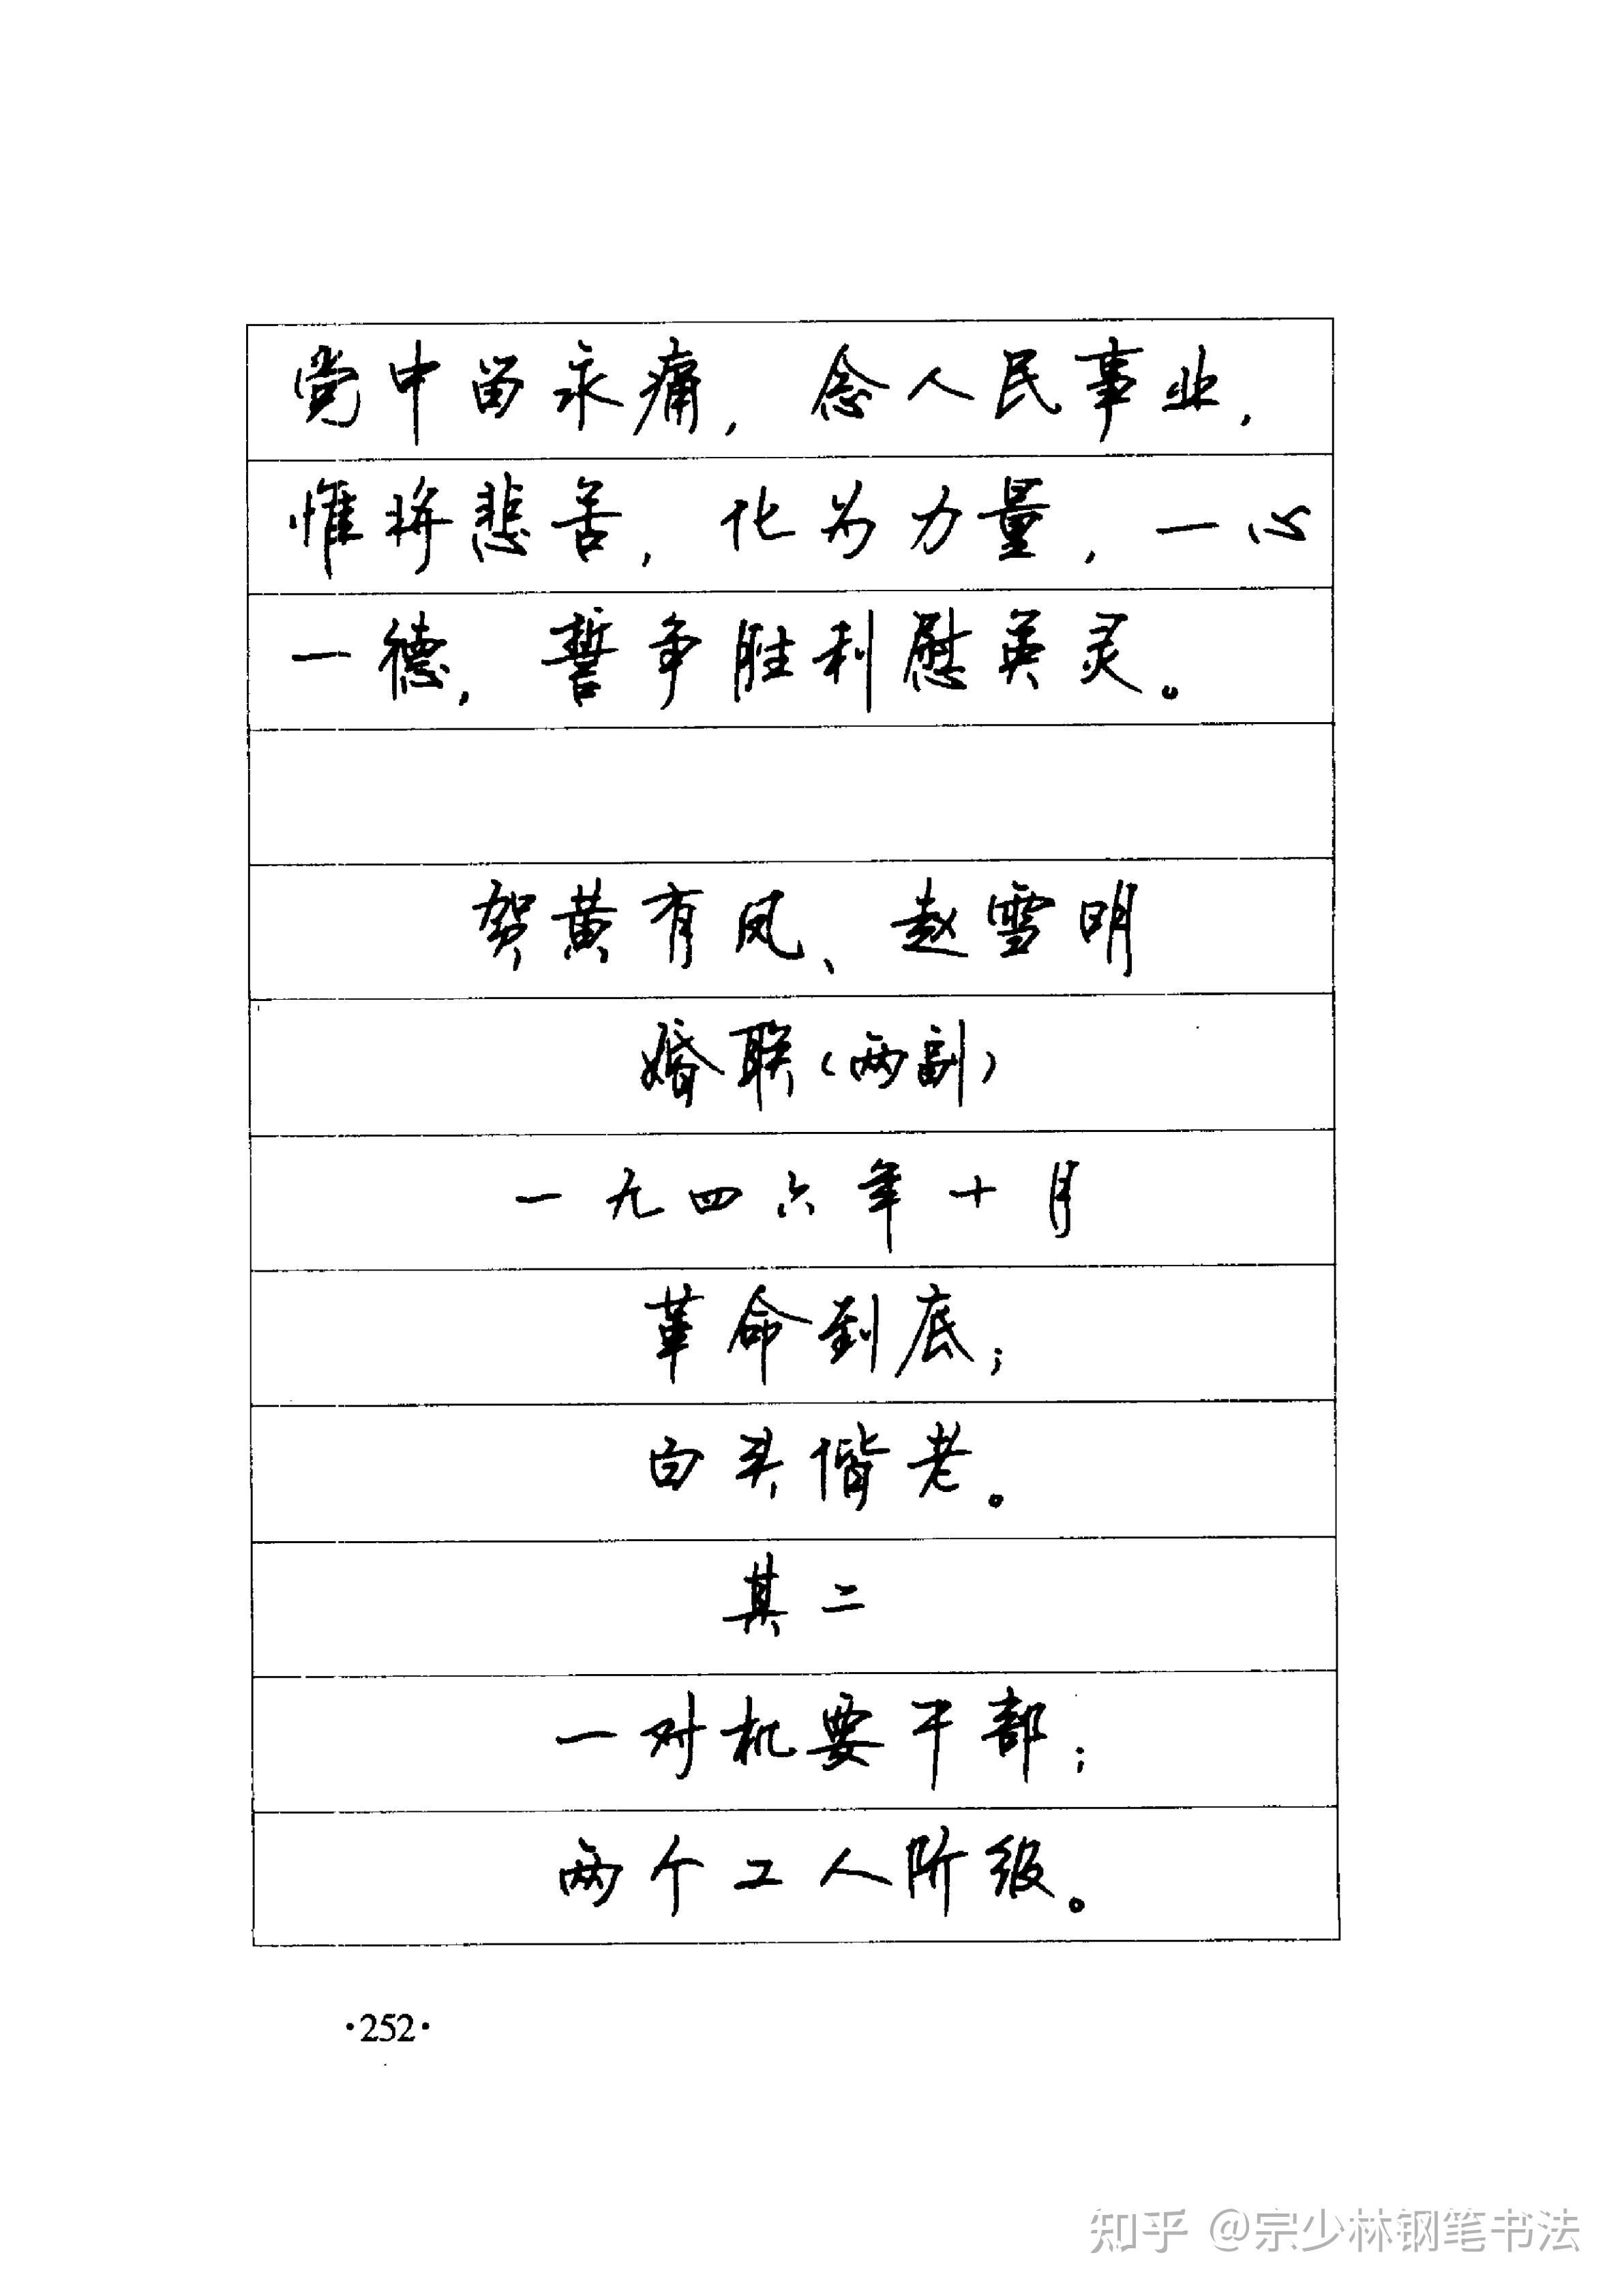 党中留永痛，念人民事业，
惟将悲苦，化为力量，一心
一德，誓争胜利慰英灵。
贺黄有凤、赵雪明
婚联（两副）
一九四六年十月
革命到底；
白头偕老。
其二
一对机要干部；
两个工人阶级。
·252·
知乎 @宗少林钢笔书法